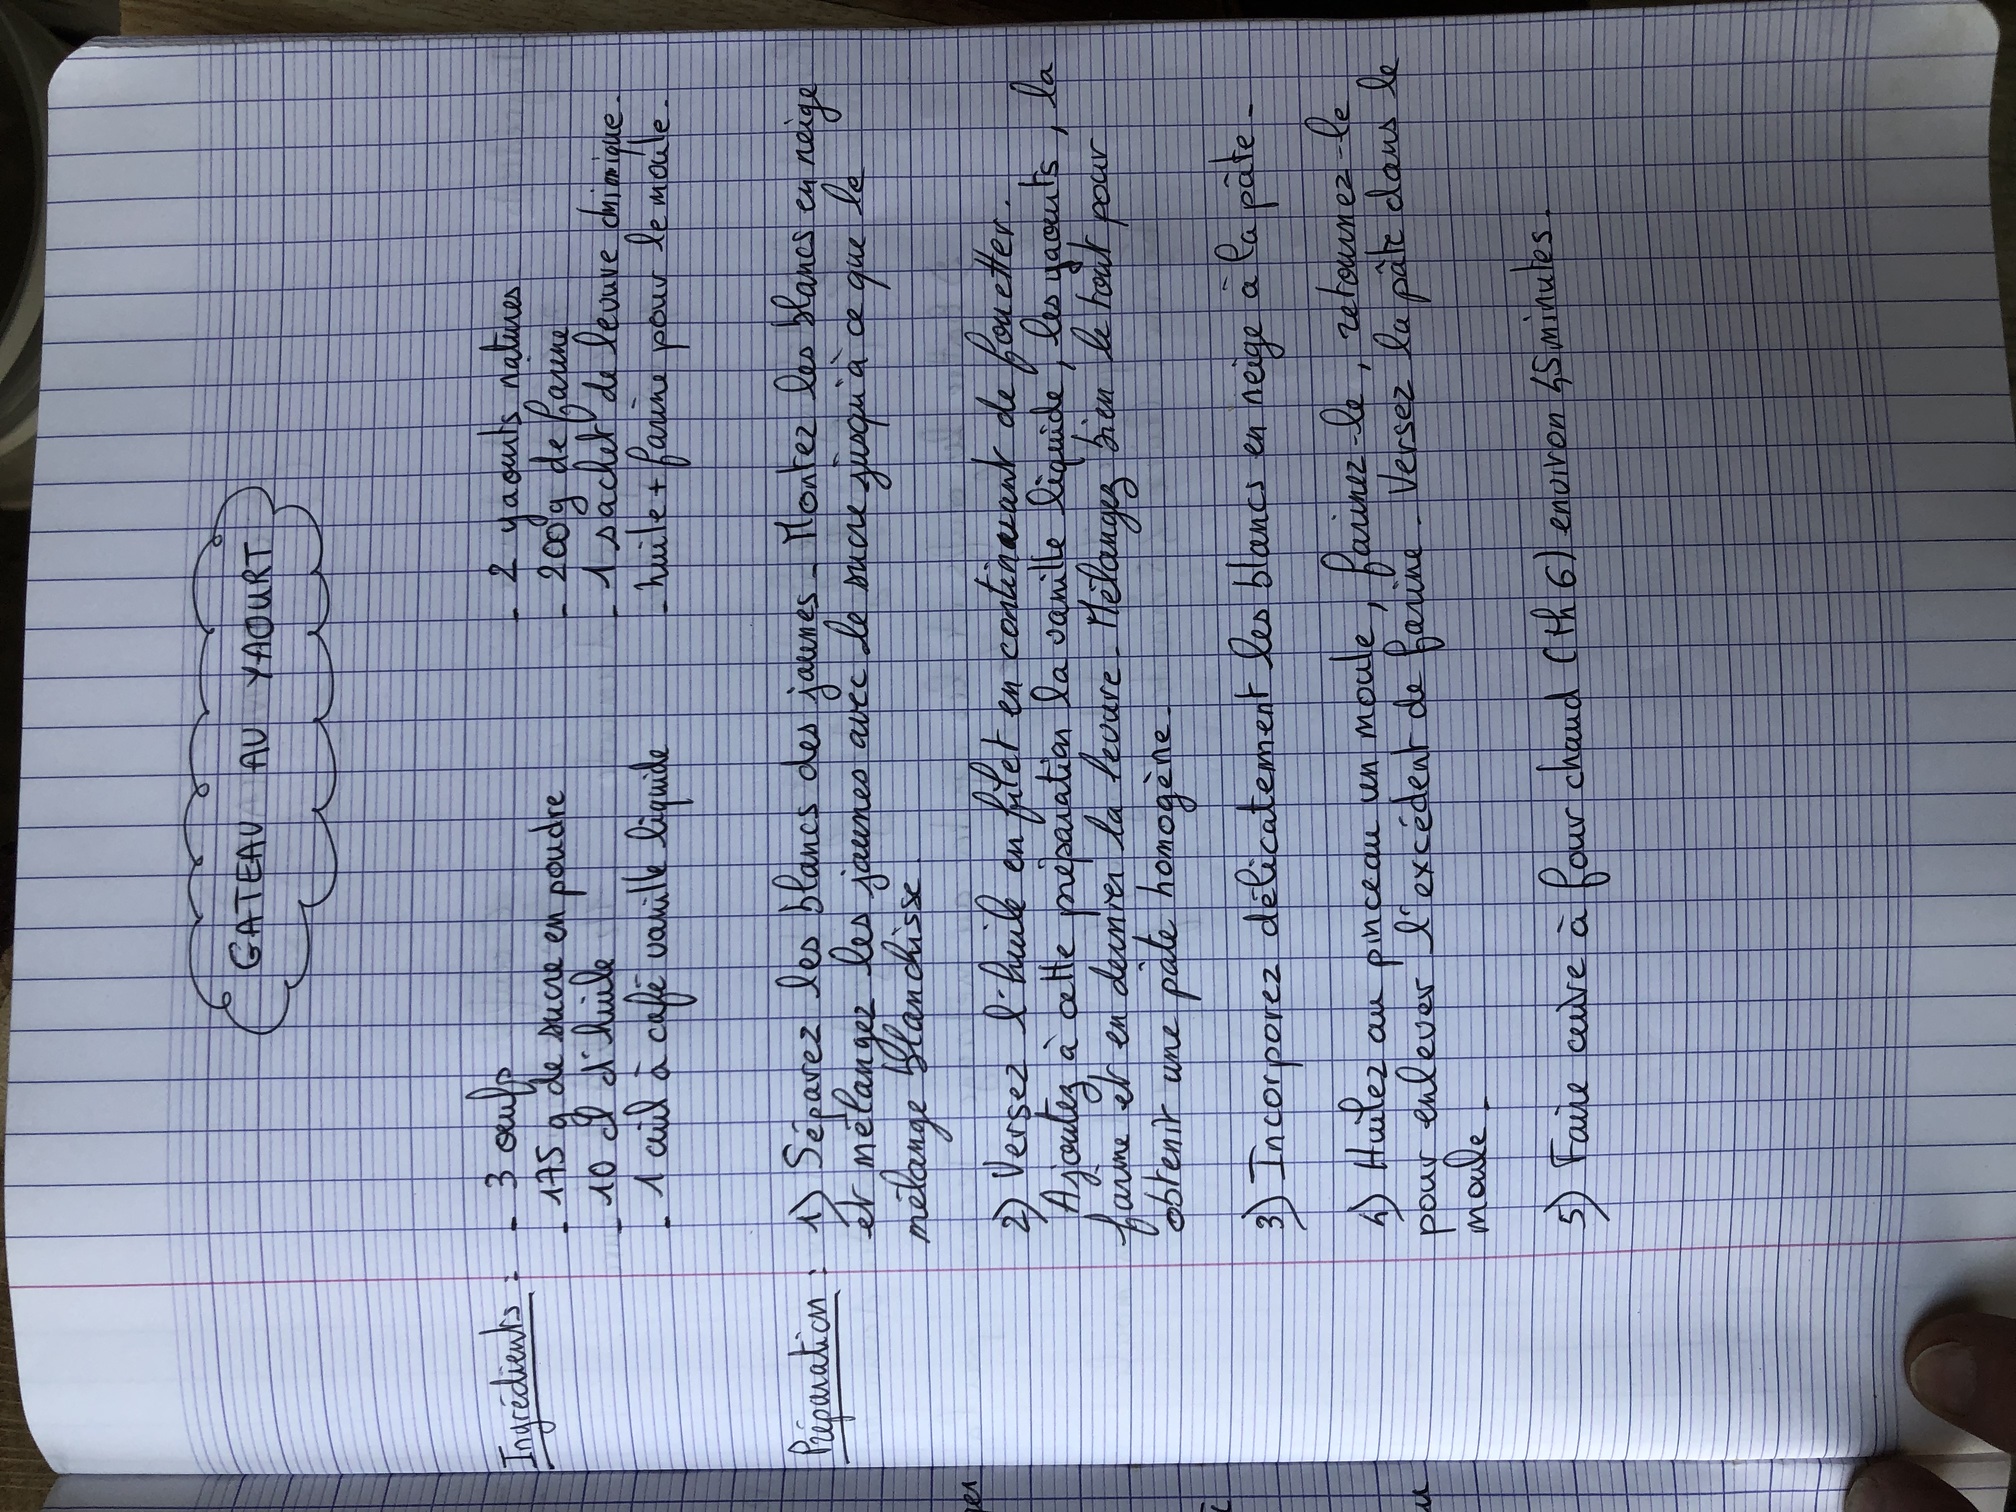 GATEAU AU YAOURT
Ingrédients :
- 3 oeufs
- 175 g de sucre en poudre
- 10 cl d'huile
- 1 cuil à café vanille liquide
- 2 yaourts natures
- 200g de farine
- 1 sachet de levure chimique.
- huile + farine pour le moule.
Préparation : 1) Séparez les blancs des jaunes - Montez les blancs en neige
et mélangez les jaunes avec le sucre jusqu'à ce que le
mélange blanchisse.
2) Versez l'huile en filet en continuant de fouetter.
Ajoutez à cette préparation la vanille liquide, les yaourts, la
farine et en dernier la levure - Mélangez bien le tout pour
obtenir une pâte homogène.
3) Incorporez délicatement les blancs en neige à la pâte -
4) Huilez au pinceau un moule, farinez-le, retournez-le
pour enlever l'excédent de farine - Versez la pâte dans le
moule -
5) Faire cuire à four chaud (th 6) environ 45 minutes.